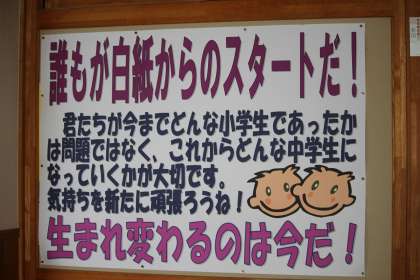 誰もが白紙からのスタートだ！
君たちが今までどんな小学生であったか
は問題ではなく、これからどんな中学生に
なっていくかが大切です。
気持ちを新たに頑張ろうね！
生まれ変わるのは今だ！